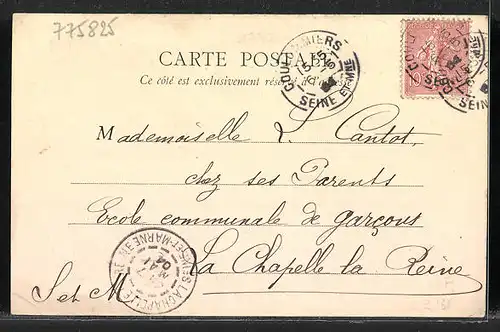 775825
CARTE POSTALE
Ce côté est exclusivement réservé à l'adresse
COULOMMIERS
SEINE ET MARNE
SEINE
Mademoiselle L. Cantot,
chez ses Parents
Ecole communale de garçons
La Chapelle la Reine
S et M
LA CHAPELLE
ET-MARNE
04